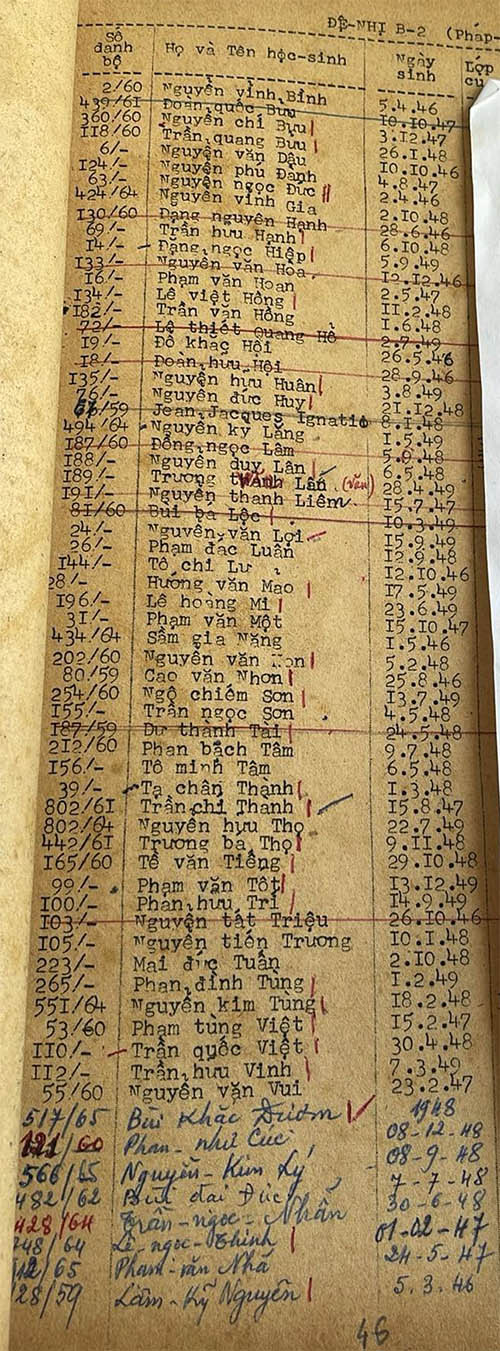 ĐỆ-NHỊ B-2 (Pháp-
Số danh bộ Họ và Tên học-sinh Ngày sinh Lớp
2/60 Nguyễn vĩnh Bình 5.4.46
439/61 Đoàn quốc Bửu 10.10.47
360/60 Nguyễn chí Bửu 3.12.47
118/60 Trần quang Bửu 26.1.48
6/- Nguyễn văn Dậu 10.10.46
124/- Nguyễn phú Đành 4.8.47
63/- Nguyễn ngọc Đức 2.4.46
424/64 Nguyễn vĩnh Gia 2.10.48
130/60 Đặng nguyên Hạnh 28.6.46
69/- Trần hữu Hạnh 6.10.48
14/- Đặng ngọc Hiệp 5.9.49
133/- Nguyễn văn Hòa 12.12.46
16/- Phạm văn Hoan 2.5.47
134/- Lê việt Hồng 11.2.48
182/- Trần văn Hồng 1.6.48
72/- Lê thiết Quang Hồ 2.7.49
19/- Đỗ khắc Hối 26.5.46
18/- Đoàn hữu Hội 28.9.46
135/- Nguyễn hữu Huân 3.8.49
76/- Nguyễn đức Huy 21.12.48
/59 Jean Jacques Ignatio 8.1.48
494/64 Nguyễn kỳ Lăng 1.5.49
187/60 Đồng ngọc Lâm 5.9.48
188/- Nguyễn duy Lân 6.5.48
189/- Trương Lân (văn) 28.4.49
191/- Nguyễn thanh Liêm 15.7.47
81/60 Bùi bá Lộc 10.3.49
24/- Nguyễn văn Lợi 15.9.49
26/- Phạm đắc Luân 12.9.48
144/- Tô chí Lư 12.10.46
28/- Hướng văn Mao 17.5.49
196/- Lê hoàng Mi 23.6.49
31/- Phạm văn Một 15.10.47
434/64 Sầm gia Năng 1.5.46
202/60 Nguyễn văn 5.2.48
80/59 Cao văn Nhơn 25.8.46
254/60 Ngô chiếm Sơn 13.7.49
155/- Trần ngọc Sơn 4.5.48
187/59 Dư thành Tài 24.5.48
212/60 Phan bạch Tâm 9.7.48
156/- Tô minh Tâm 6.5.48
39/- Tạ chân Thạnh 1.3.48
802/61 Trần chí Thanh 15.8.47
802/64 Nguyễn hữu Thọ 22.7.49
442/61 Trương bá Thọ 9.11.48
165/60 Tề văn Tiếng 29.10.48
99/- Phạm văn Tốt 13.12.49
100/- Phan hữu Trí 14.9.49
103/- Nguyễn tất Triệu 26.10.46
105/- Nguyễn tiến Trương 10.1.48
223/- Mai đức Tuấn 2.10.48
265/- Phan đình Tùng 1.2.49
551/64 Nguyễn kim Tùng 18.2.48
53/60 Phạm tùng Việt 15.2.47
110/- Trần quốc Việt 30.4.48
112/- Trần hữu Vinh 7.3.49
55/60 Nguyễn văn Vui 23.2.47
517/65 Bùi Khắc Dươm 1948
121/60 Phan-như Cúc 08-12-48
566/65 Nguyễn-Kim Ký 08-9-48
482/62 đại Đức 7-7-48
428/64 Trần-ngọc-Nhẫn 30-6-48
748/64 Lê-ngọc-Thinh 01-02-47
/65 Phạm-văn Nhã 24-5-47
28/59 Lâm-Kỹ Nguyên 5.3.46
46